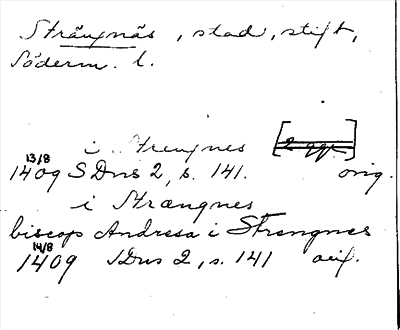 Strängnäs, stad, stift,
Söderm. l.
i Strengnes [2 ggr.]
13/8
1409 SDns 2, s. 141. orig.
i Strængnes
biscop Andresa i Strengnes
14/8
1409 SDns 2, s. 141